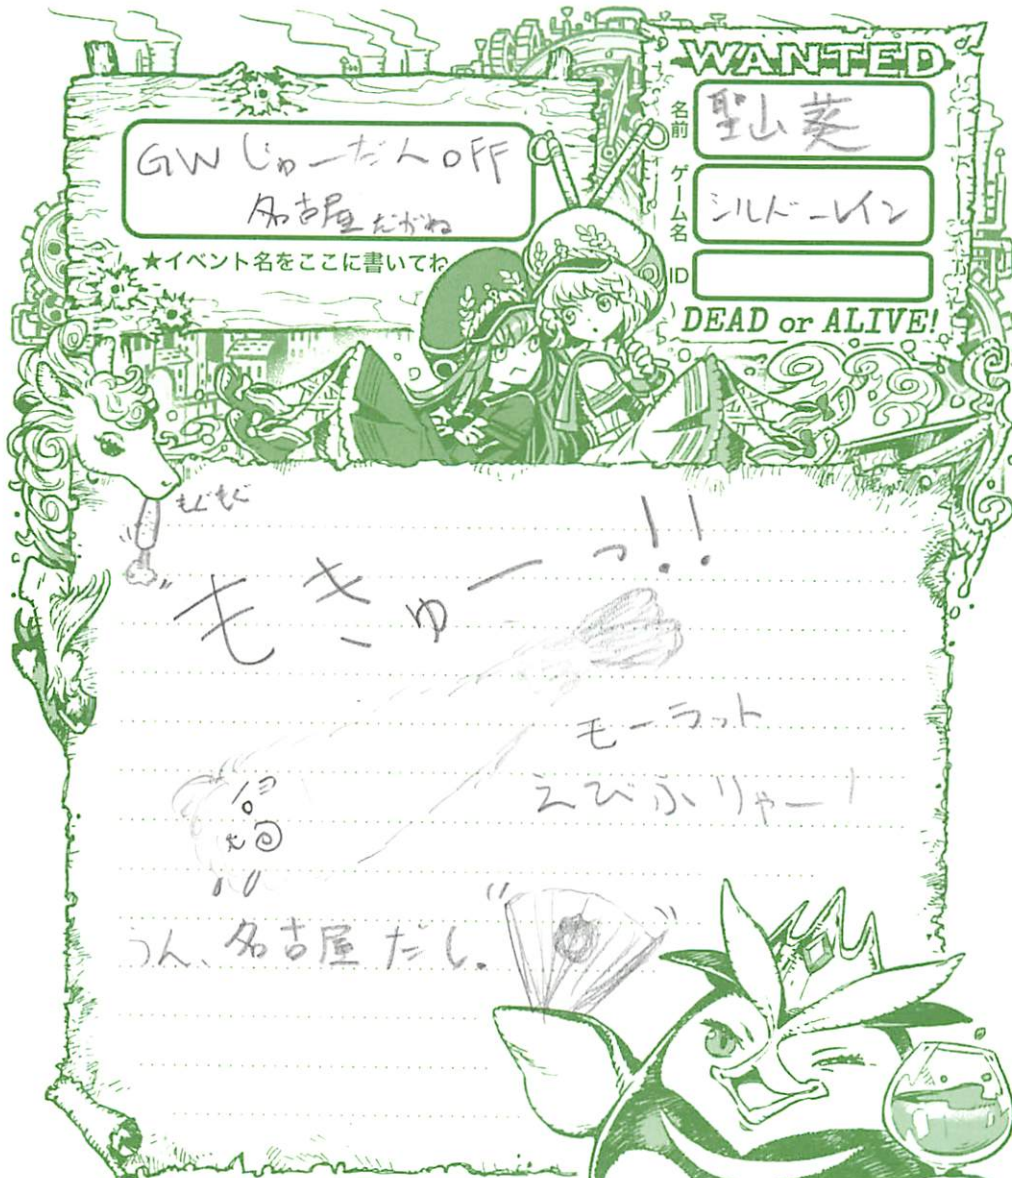 WANTED
名前
聖山葵
ゲーム名
シルバーレイン
ID
DEAD or ALIVE!
GW じゅーだんOFF
名古屋だがね
★イベント名をここに書いてね
もぐもぐ
もきゅーっ!!
モーラット
えびふりゃー!
うん、名古屋だし。